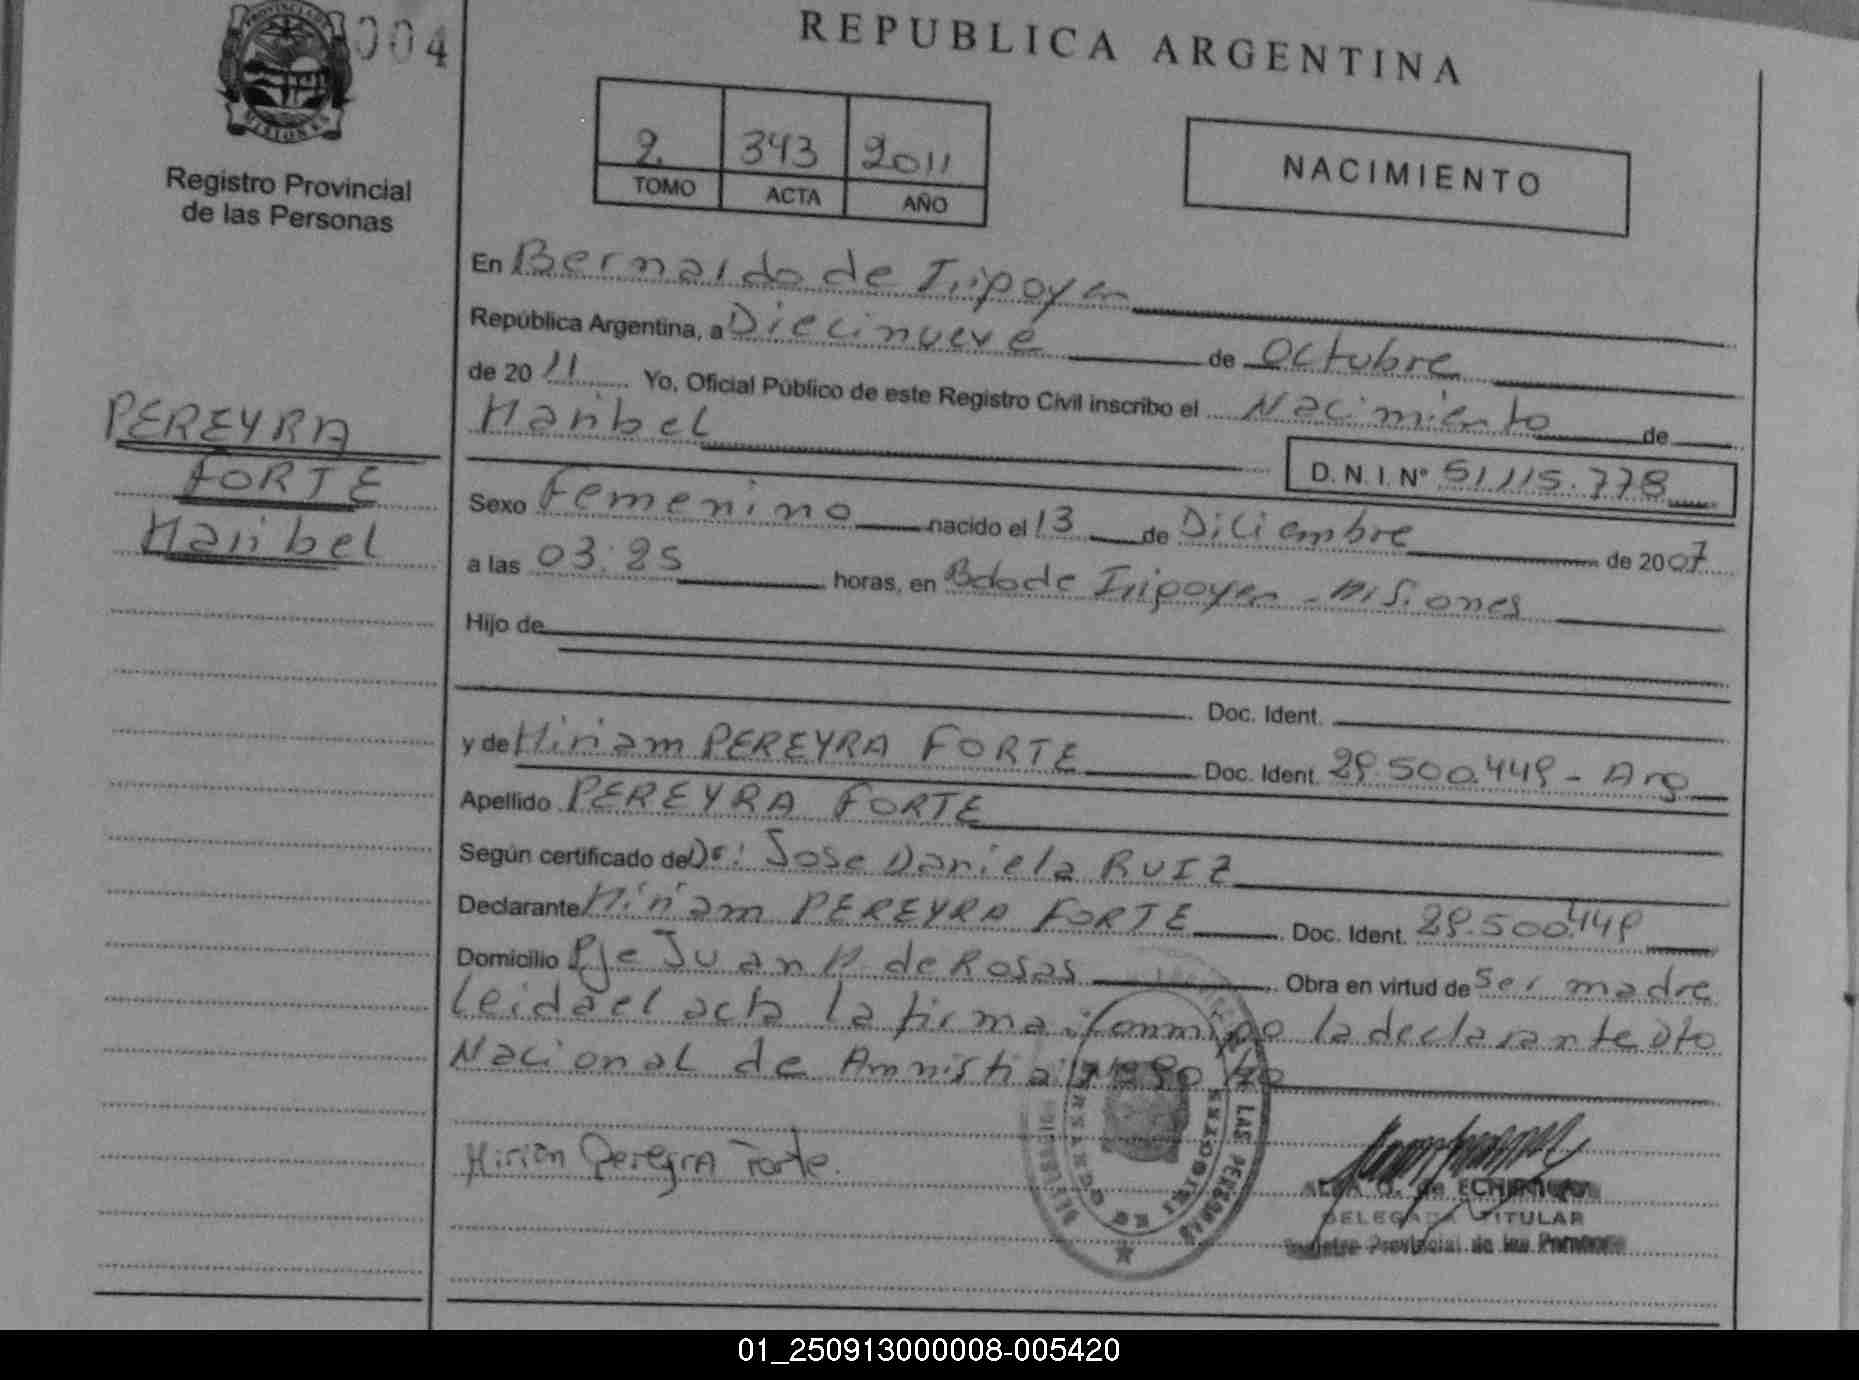 PROVINCIA DE
MISIONES
004
Registro Provincial
de las Personas
REPUBLICA ARGENTINA
2 343 2011
TOMO ACTA AÑO
NACIMIENTO
En Bernardo de Irigoyen
República Argentina, a Diecinueve de Octubre
de 2011 Yo, Oficial Público de este Registro Civil inscribo el Nacimiento de
Maribel
D. N. I. Nº 51.115.778
PEREYRA
FORTE
Maribel
Sexo Femenino nacido el 13 de Diciembre de 2007
a las 03:25 horas, en Bdo de Irigoyen - Misiones
Hijo de
Doc. Ident.
y de Miriam PEREYRA FORTE Doc. Ident. 29.500.449 - Arg
Apellido PEREYRA FORTE
Según certificado de Dr: Jose Daniela RUIZ
Declarante Miriam PEREYRA FORTE Doc. Ident. 29.500.449
Domicilio Pje Juan M. de Rosas Obra en virtud de Ser madre
Leida el acta la firma conmigo la declarante Dto
Nacional de Amnistia
Mirian Pereyra Forte.
ALBA G. de
DELEGADA TITULAR
Registro Provincial de las Personas
01_250913000008-005420